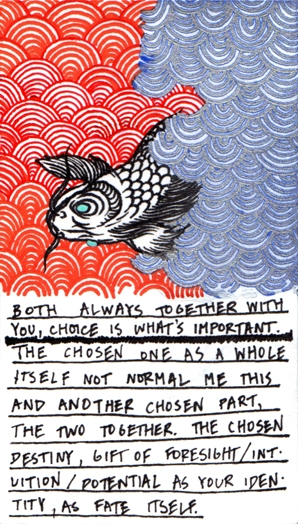 BOTH ALWAYS TOGETHER WITH
YOU, CHOICE IS WHAT'S IMPORTANT.
THE CHOSEN ONE AS A WHOLE
ITSELF NOT NORMAL ME THIS
AND ANOTHER CHOSEN PART,
THE TWO TOGETHER. THE CHOSEN
DESTINY, GIFT OF FORESIGHT/INT-
UITION/POTENTIAL AS YOUR IDEN-
TITY, AS FATE ITSELF.